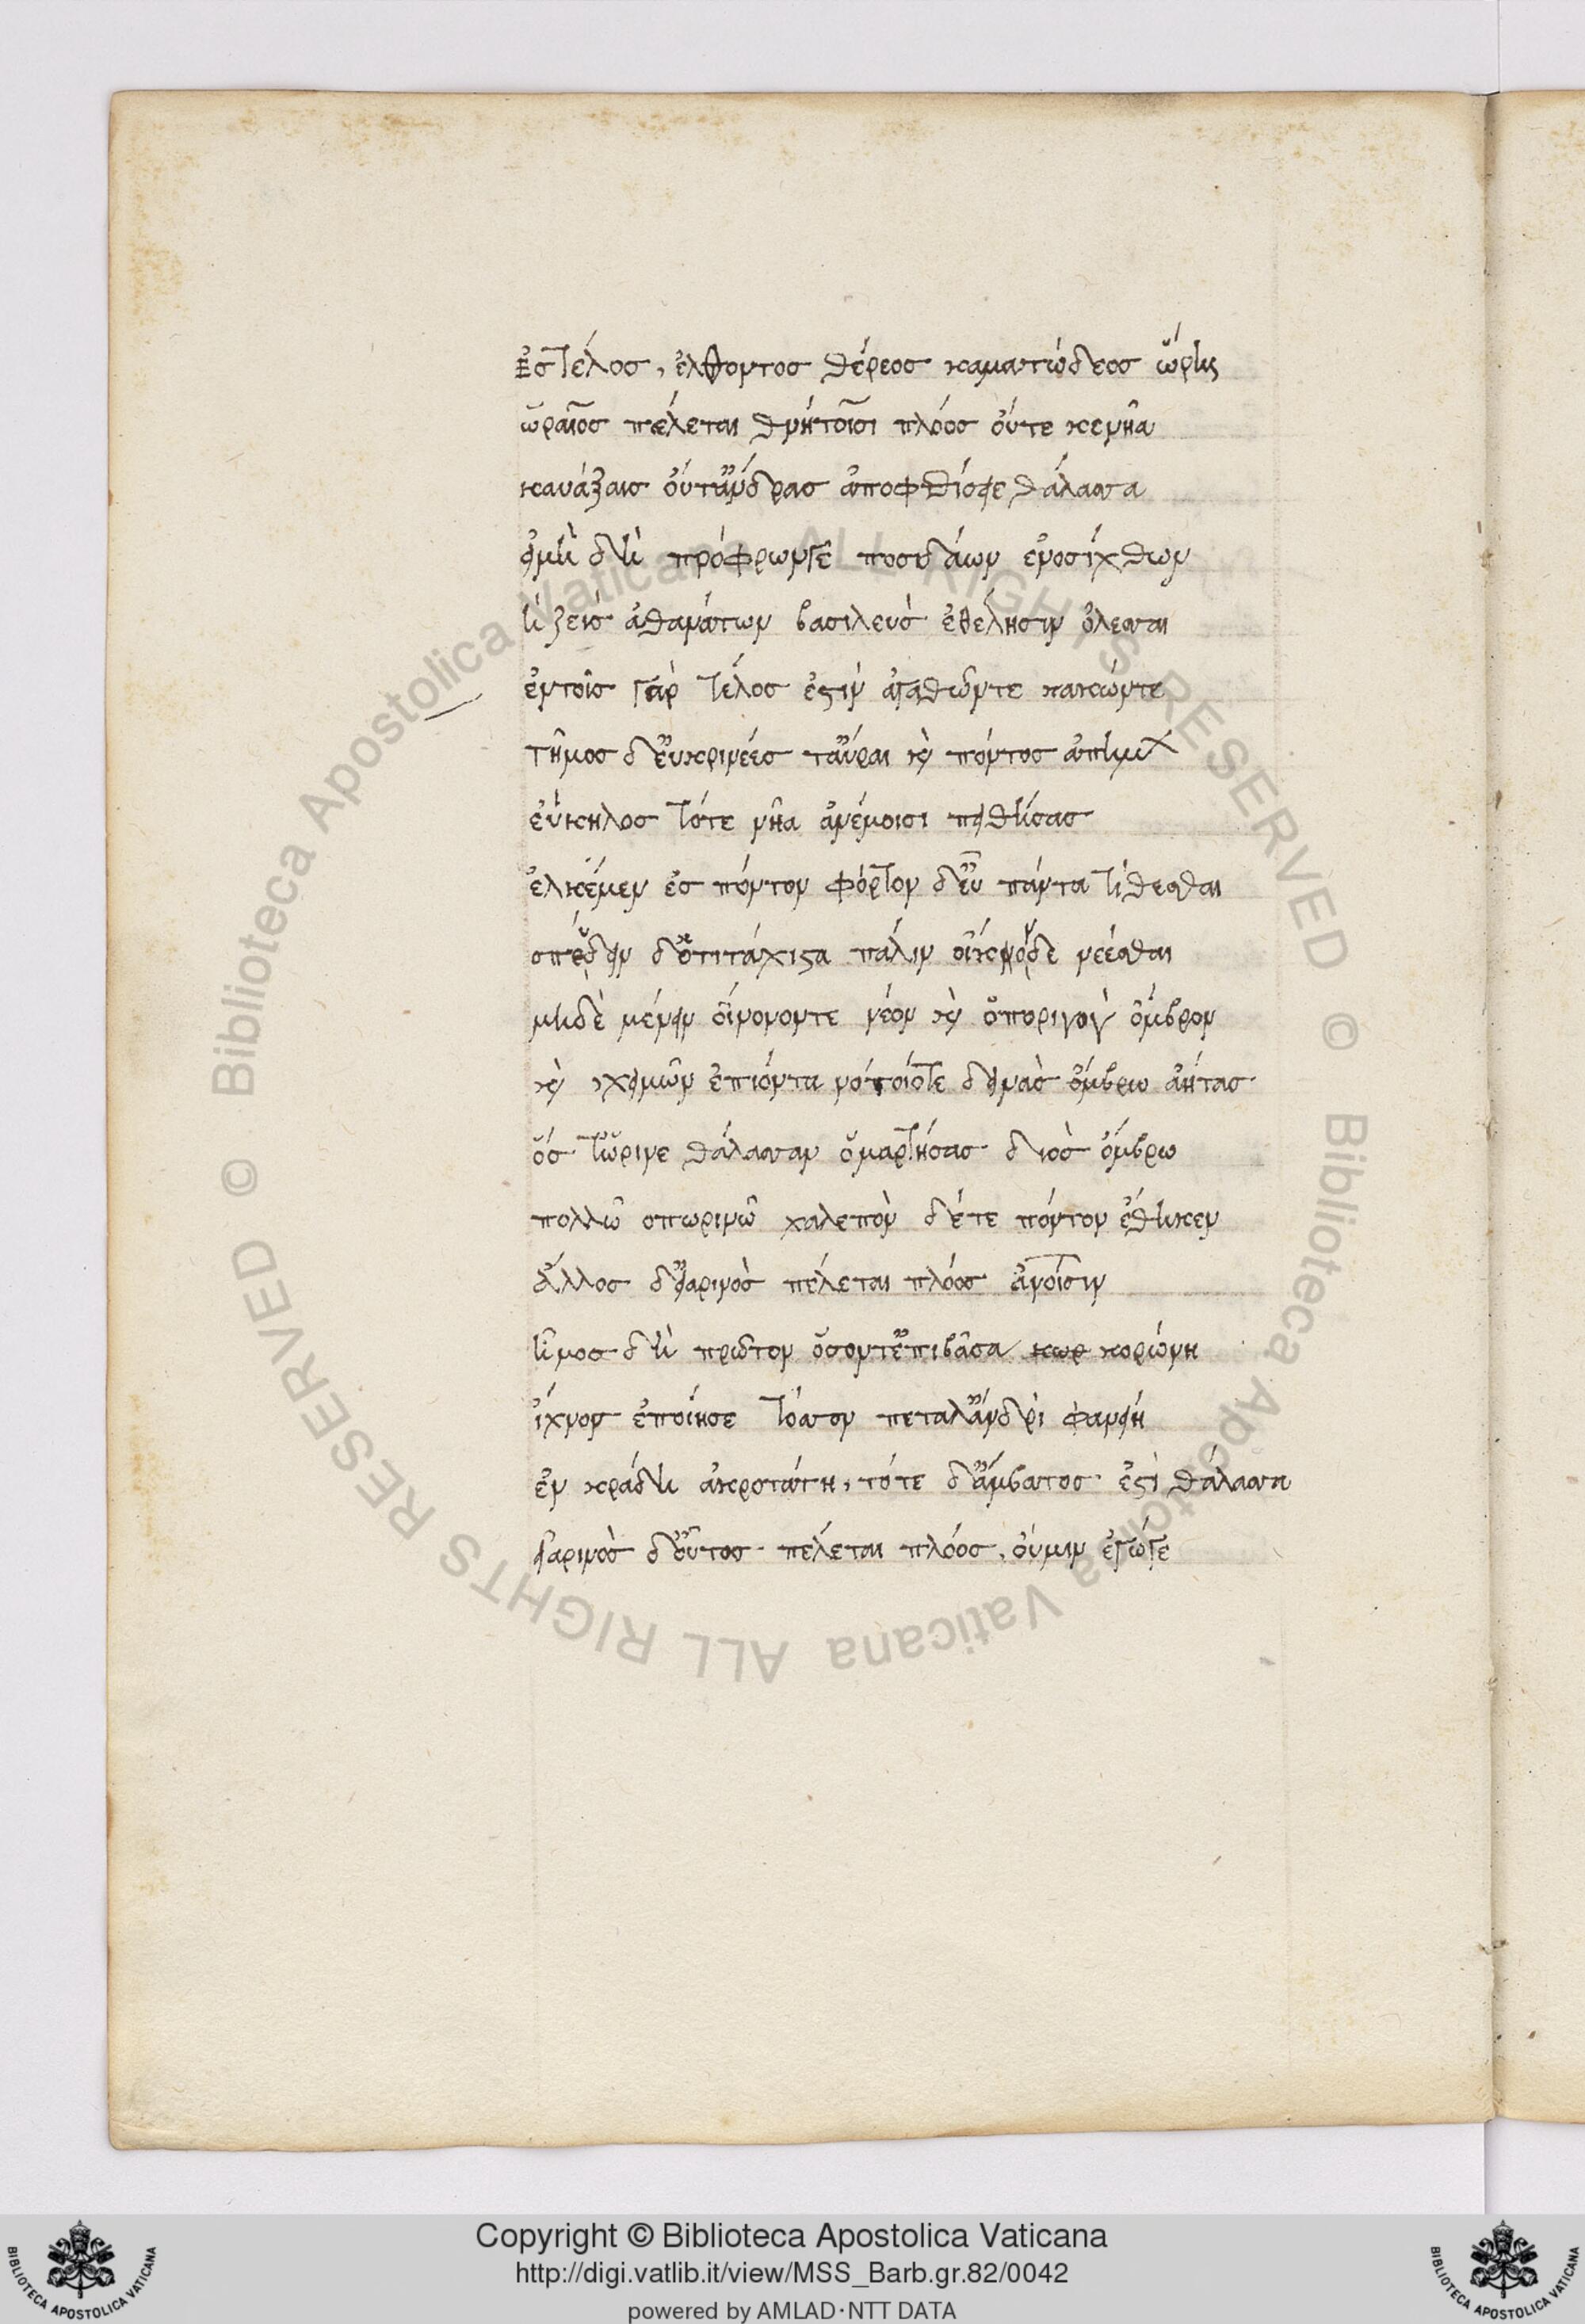 ἐς τέλος, ἐλθοντος θέρεος καματώδεος ὥρης
ὡραῖος πέλεται θνήτοῖσι πλόος οὔτε κε νῆα
καυάξαις οὔτ' ἄνδρας ἀποφθίσειε θάλασσα
εἰμὴ δὴ πρόφρωνγε ποσειδάων ἐνοσίχθων
ἢ ζεὺς ἀθανάτων βασιλεὺς ἐθέλησιν ὀλέσσαι
ἐντοῖς γὰρ τέλος ἐστὶν ἀγαθῶντε κακώντε
τῆμος δ' εὐκρινέες τ' αὖραι καὶ πόντος ἀπήμων
εὔκηλος τότε νῆα ἀνέμοισι πειθήσας
ἑλκέμεν ἐς πόντον φόρτον δ' εὖ πάντα τίθεσθαι
σπεύδειν δ' ὅτι τάχιστα πάλιν οἶκονδε νέεσθαι
μηδὲ μένειν οἶνονοντε νέον καὶ ὀπορινὸν ὄμβρον
καὶ χειμῶν ἐπιόντα νότοιότε δεινὰς ὄμβρω ἀήτας
ὅς τ' ὤρινε θάλασσαν ὁμαρτήσας διὸς ὄμβρω
πολλῶ οπωρινῶ χαλεπὸν δέτε πόντον ἔθηκεν
ἄλλος δ' εἰαρινὸς πέλεται πλόος ἀνοῖσιν
ἦμος δὴ πρῶτον ὅσοντ' ἐπιβᾶσα κωρ κορώνη
ἴχνος ἐποίησε τόσσον πεταλ' ἄνδρὶ φανείη
ἐν κράδη ἀκροτάτη, τότε δ' ἄμβατος ἐστὶ θάλασσα
εἰαρινὸς δ' οὗτος πέλεται πλόος, οὔμιν ἐγώγε
Copyright © Biblioteca Apostolica Vaticana
http://digi.vatlib.it/view/MSS_Barb.gr.82/0042
powered by AMLAD·NTT DATA